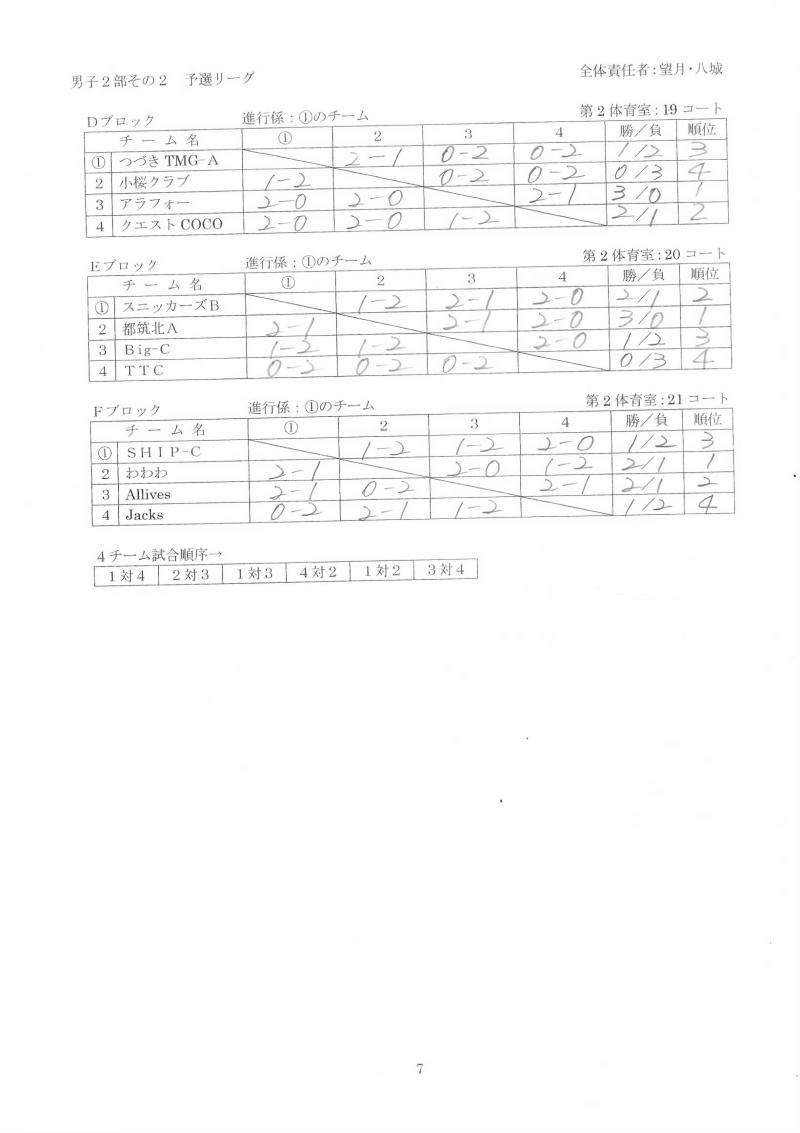 男子２部その２　予選リーグ
全体責任者：望月・八城
Ｄブロック　進行係：①のチーム　第２体育室：19 コート
チーム名　①　2　3　4　勝／負　順位
①　つづき TMG-A　2-1　0-2　0-2　1/2　3
2　小桜クラブ　1-2　0-2　0-2　0/3　4
3　アラフォー　2-0　2-0　2-1　3/0　1
4　クエスト COCO　2-0　2-0　1-2　2/1　2
Ｅブロック　進行係：①のチーム　第２体育室：20 コート
チーム名　①　2　3　4　勝／負　順位
①　スニッカーズＢ　1-2　2-1　2-0　2/1　2
2　都筑北Ａ　2-1　2-1　2-0　3/0　1
3　Ｂig-Ｃ　1-2　1-2　2-0　1/2　3
4　ＴＴＣ　0-2　0-2　0-2　0/3　4
Ｆブロック　進行係：①のチーム　第２体育室：21 コート
チーム名　①　2　3　4　勝／負　順位
①　ＳＨＩＰ-Ｃ　1-2　1-2　2-0　1/2　3
2　わわわ　2-1　2-0　1-2　2/1　1
3　Allives　2-1　0-2　2-1　2/1　2
4　Jacks　0-2　2-1　1-2　1/2　4
４チーム試合順序→
１対４　２対３　１対３　４対２　１対２　３対４
7